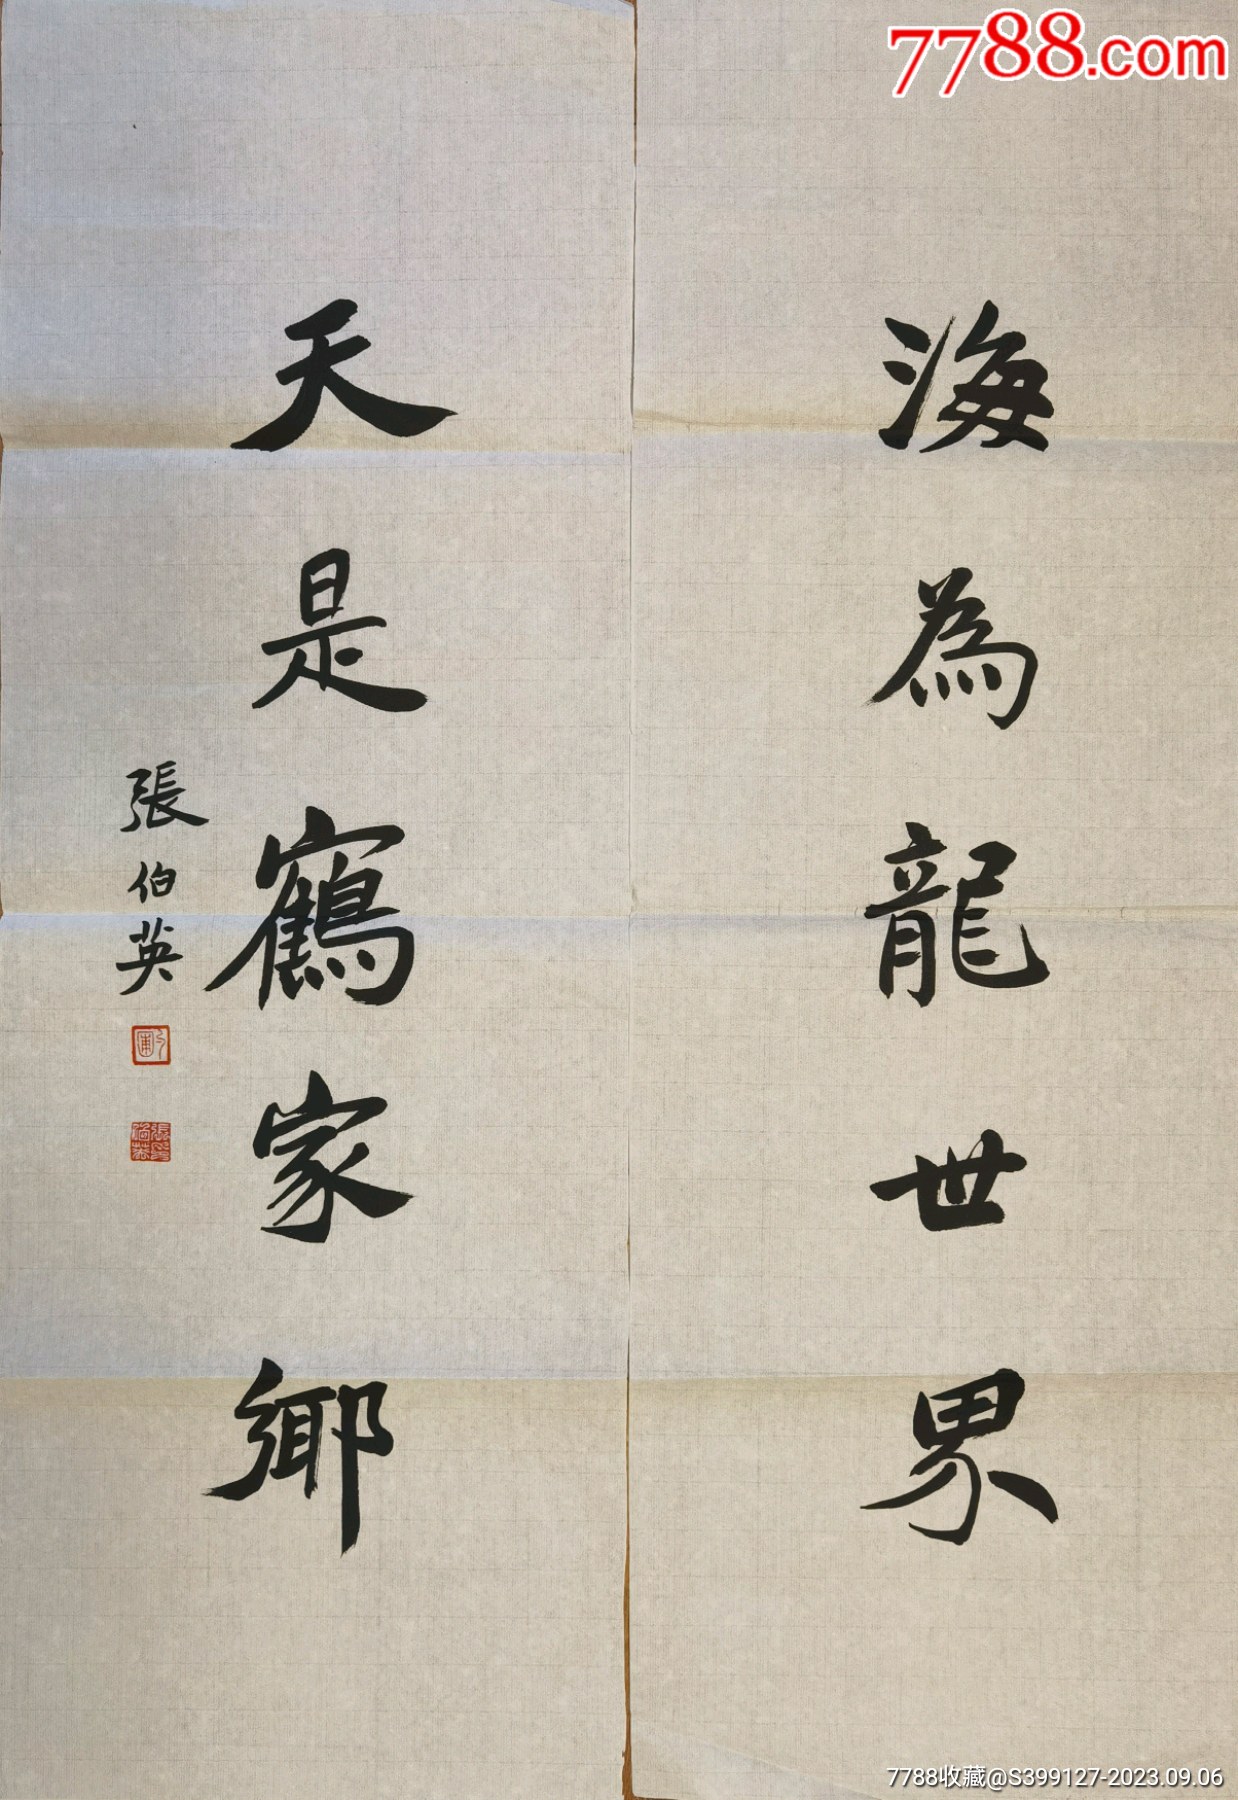 7788.com
海為龍世界
天是鶴家鄉
張伯英
張伯英印
7788收藏@S399127-2023.09.06